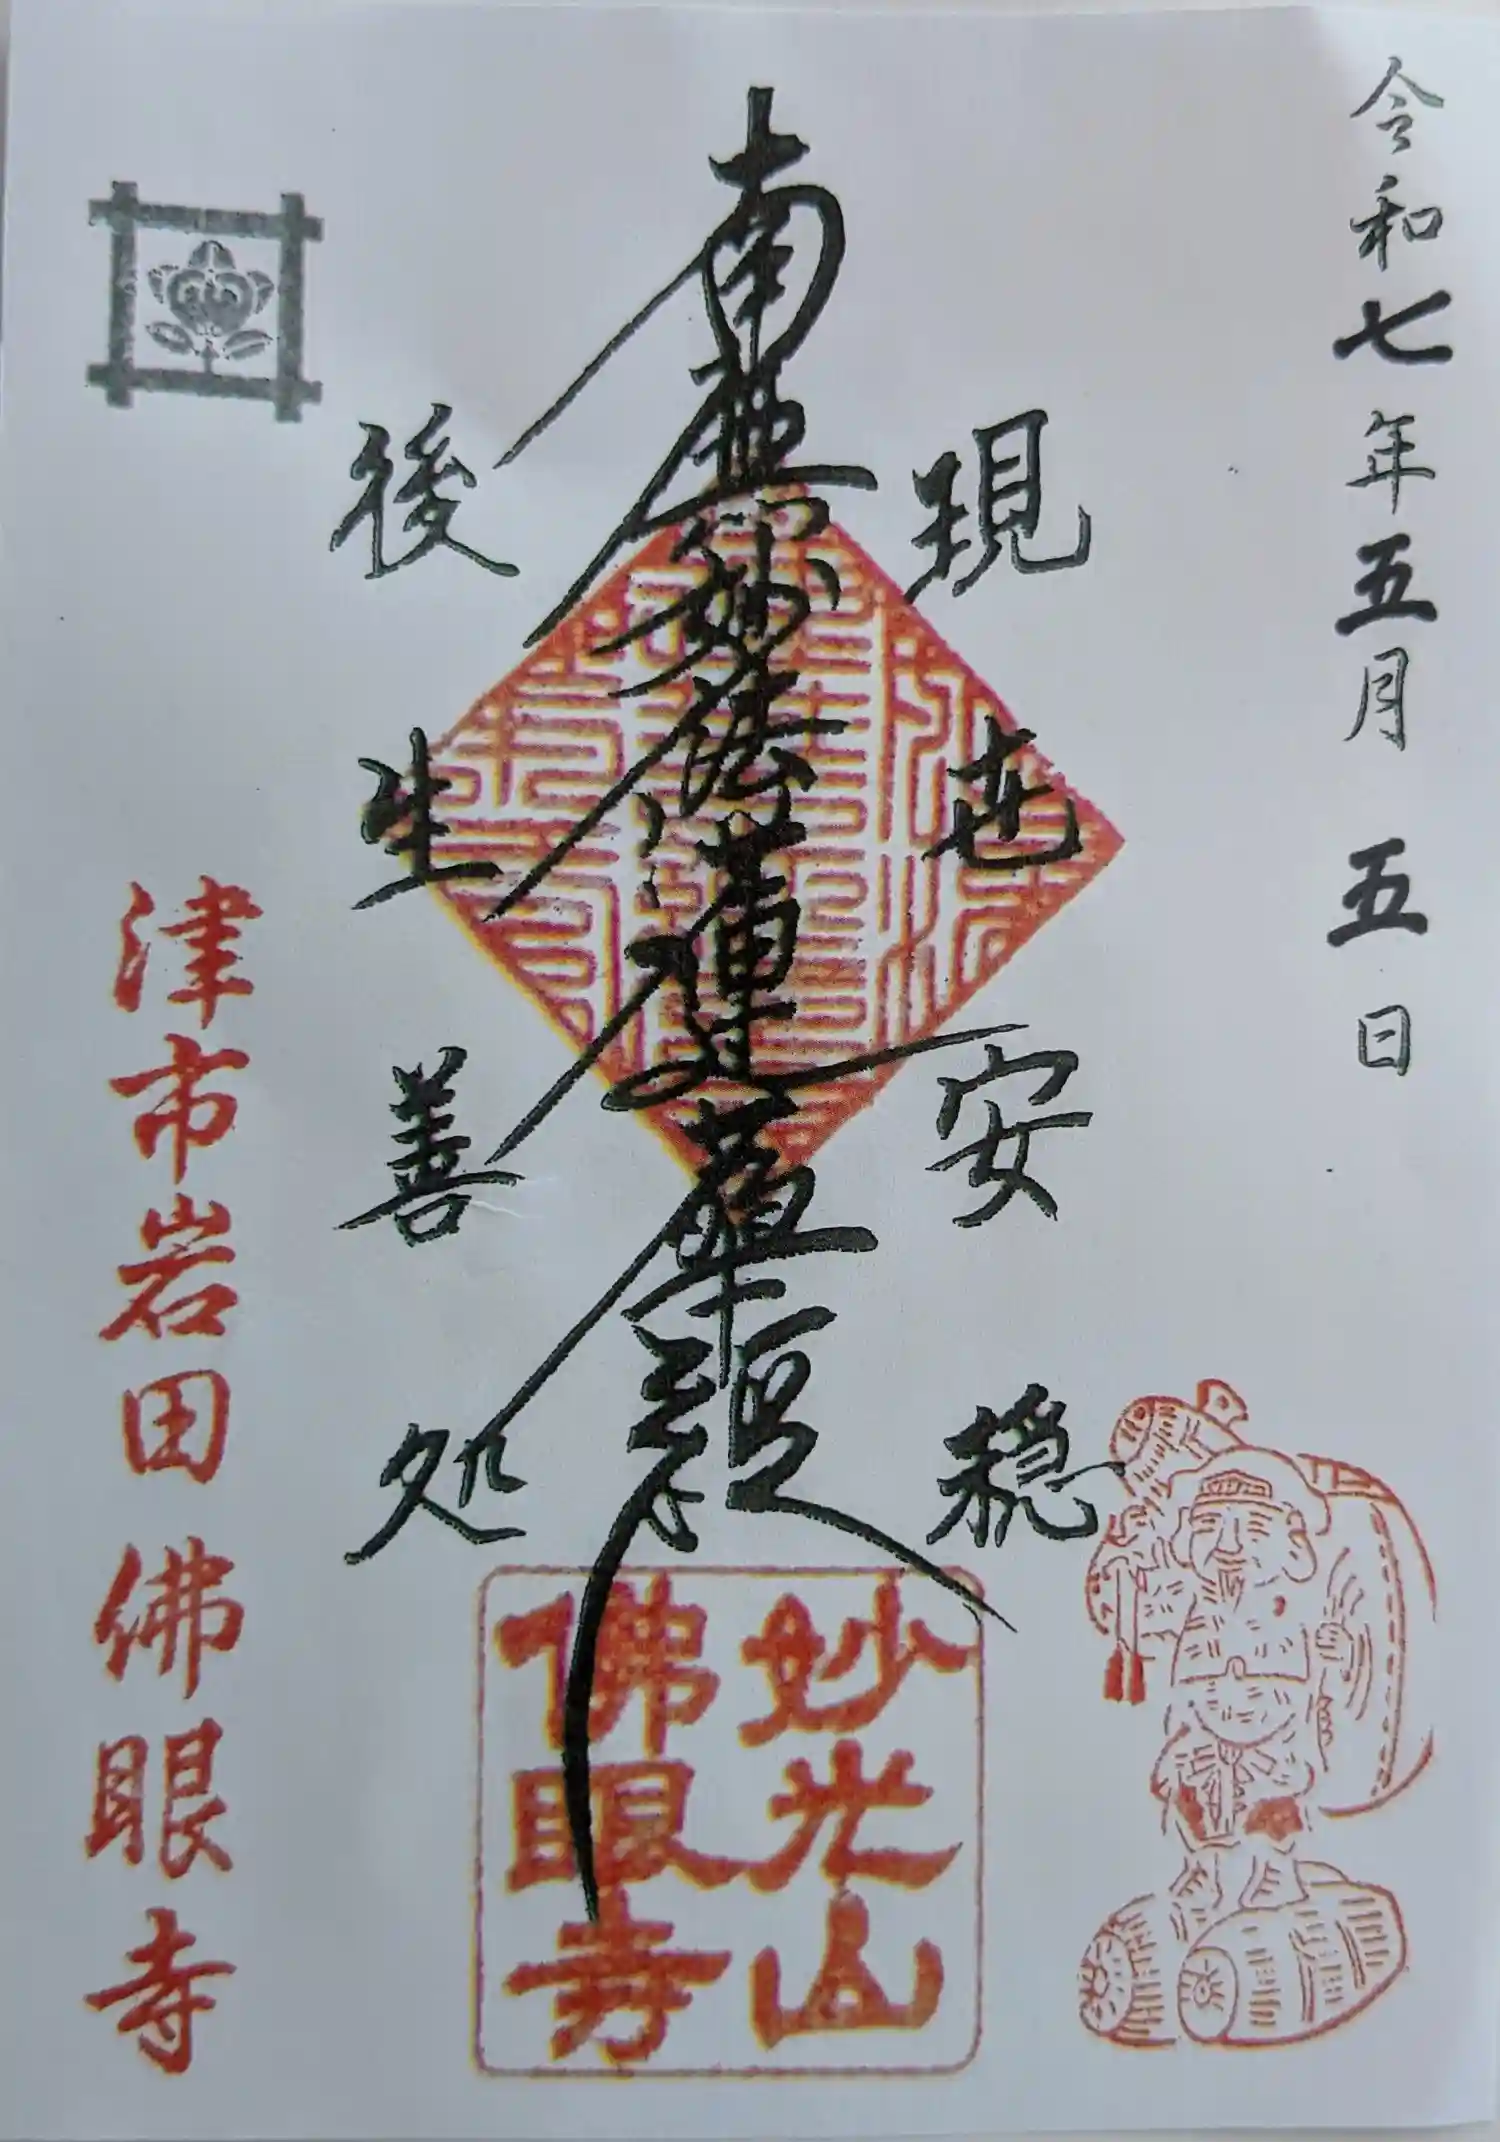 令和七年五月五日
現世安穏
南無妙法蓮華経
後生善処
妙光山
佛眼寺
津市岩田佛眼寺